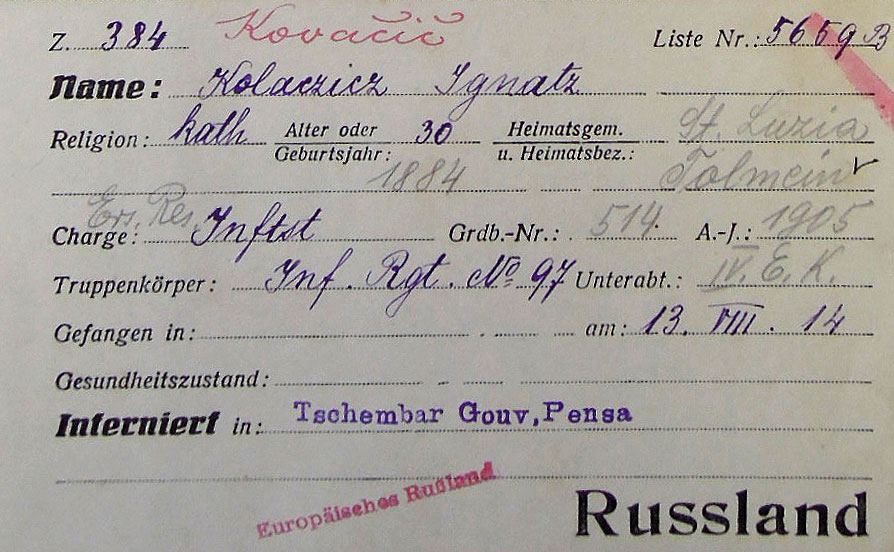 Z. 384 Kovačič Liste Nr.: 5659 B
Name: Kolaczicz Ignatz
Religion: kath Alter oder Geburtsjahr: 30 Heimatsgem. u. Heimatsbez.: St. Luzia
1884 Tolmein
Ers. Res.
Charge: Inftst Grdb.-Nr.: 514. A.-J.: 1905
Truppenkörper: Inf. Rgt. No 97 Unterabt.: IV. E. K.
Gefangen in: am: 13. VIII. 14
Gesundheitszustand:
Interniert in: Tschembar Gouv, Pensa
Europäisches Rußland
Russland